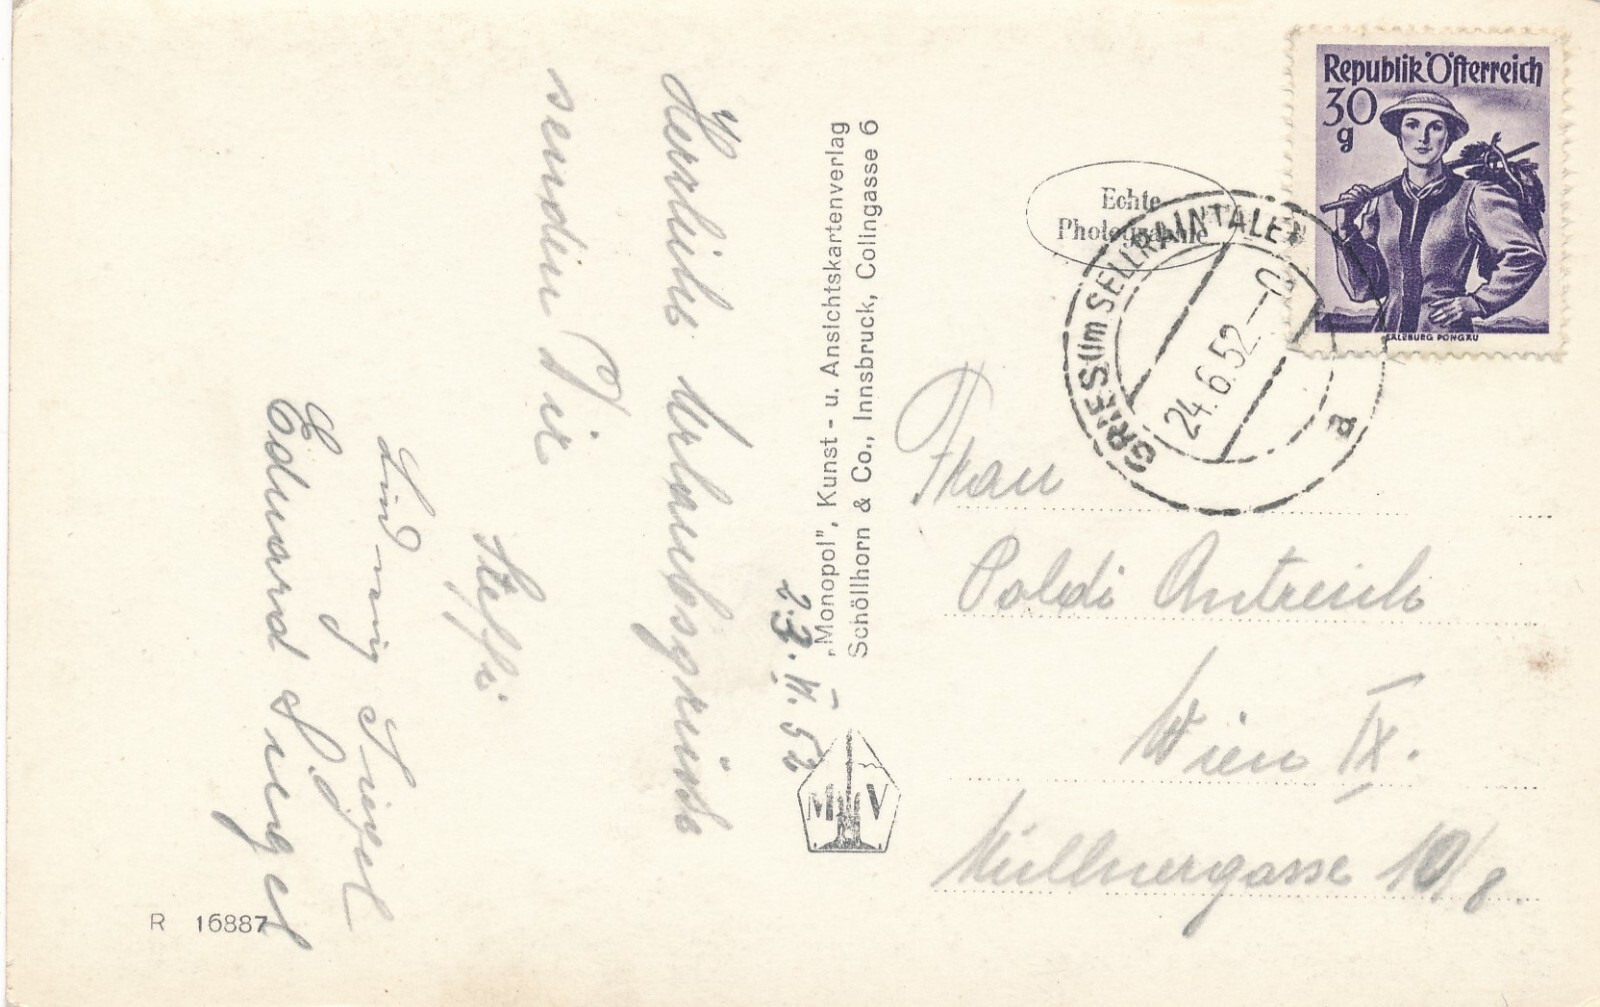 23.VI.52
Herrliche Urlaubsgrüsse
senden Dir
Steffi
Ludwig Singel
Eduard Singel
R 16887
„Monopol”, Kunst- u. Ansichtskartenverlag
Schöllhorn & Co., Innsbruck, Colingasse 6
M V
Echte
Photographie
Republik Österreich
30
g
SALZBURG PONGAU
GRIES (im SELLRAINTALE)
24.6.52
a
Frau
Poldi Antreich
Wien IX.
Müllnergasse 10/8.